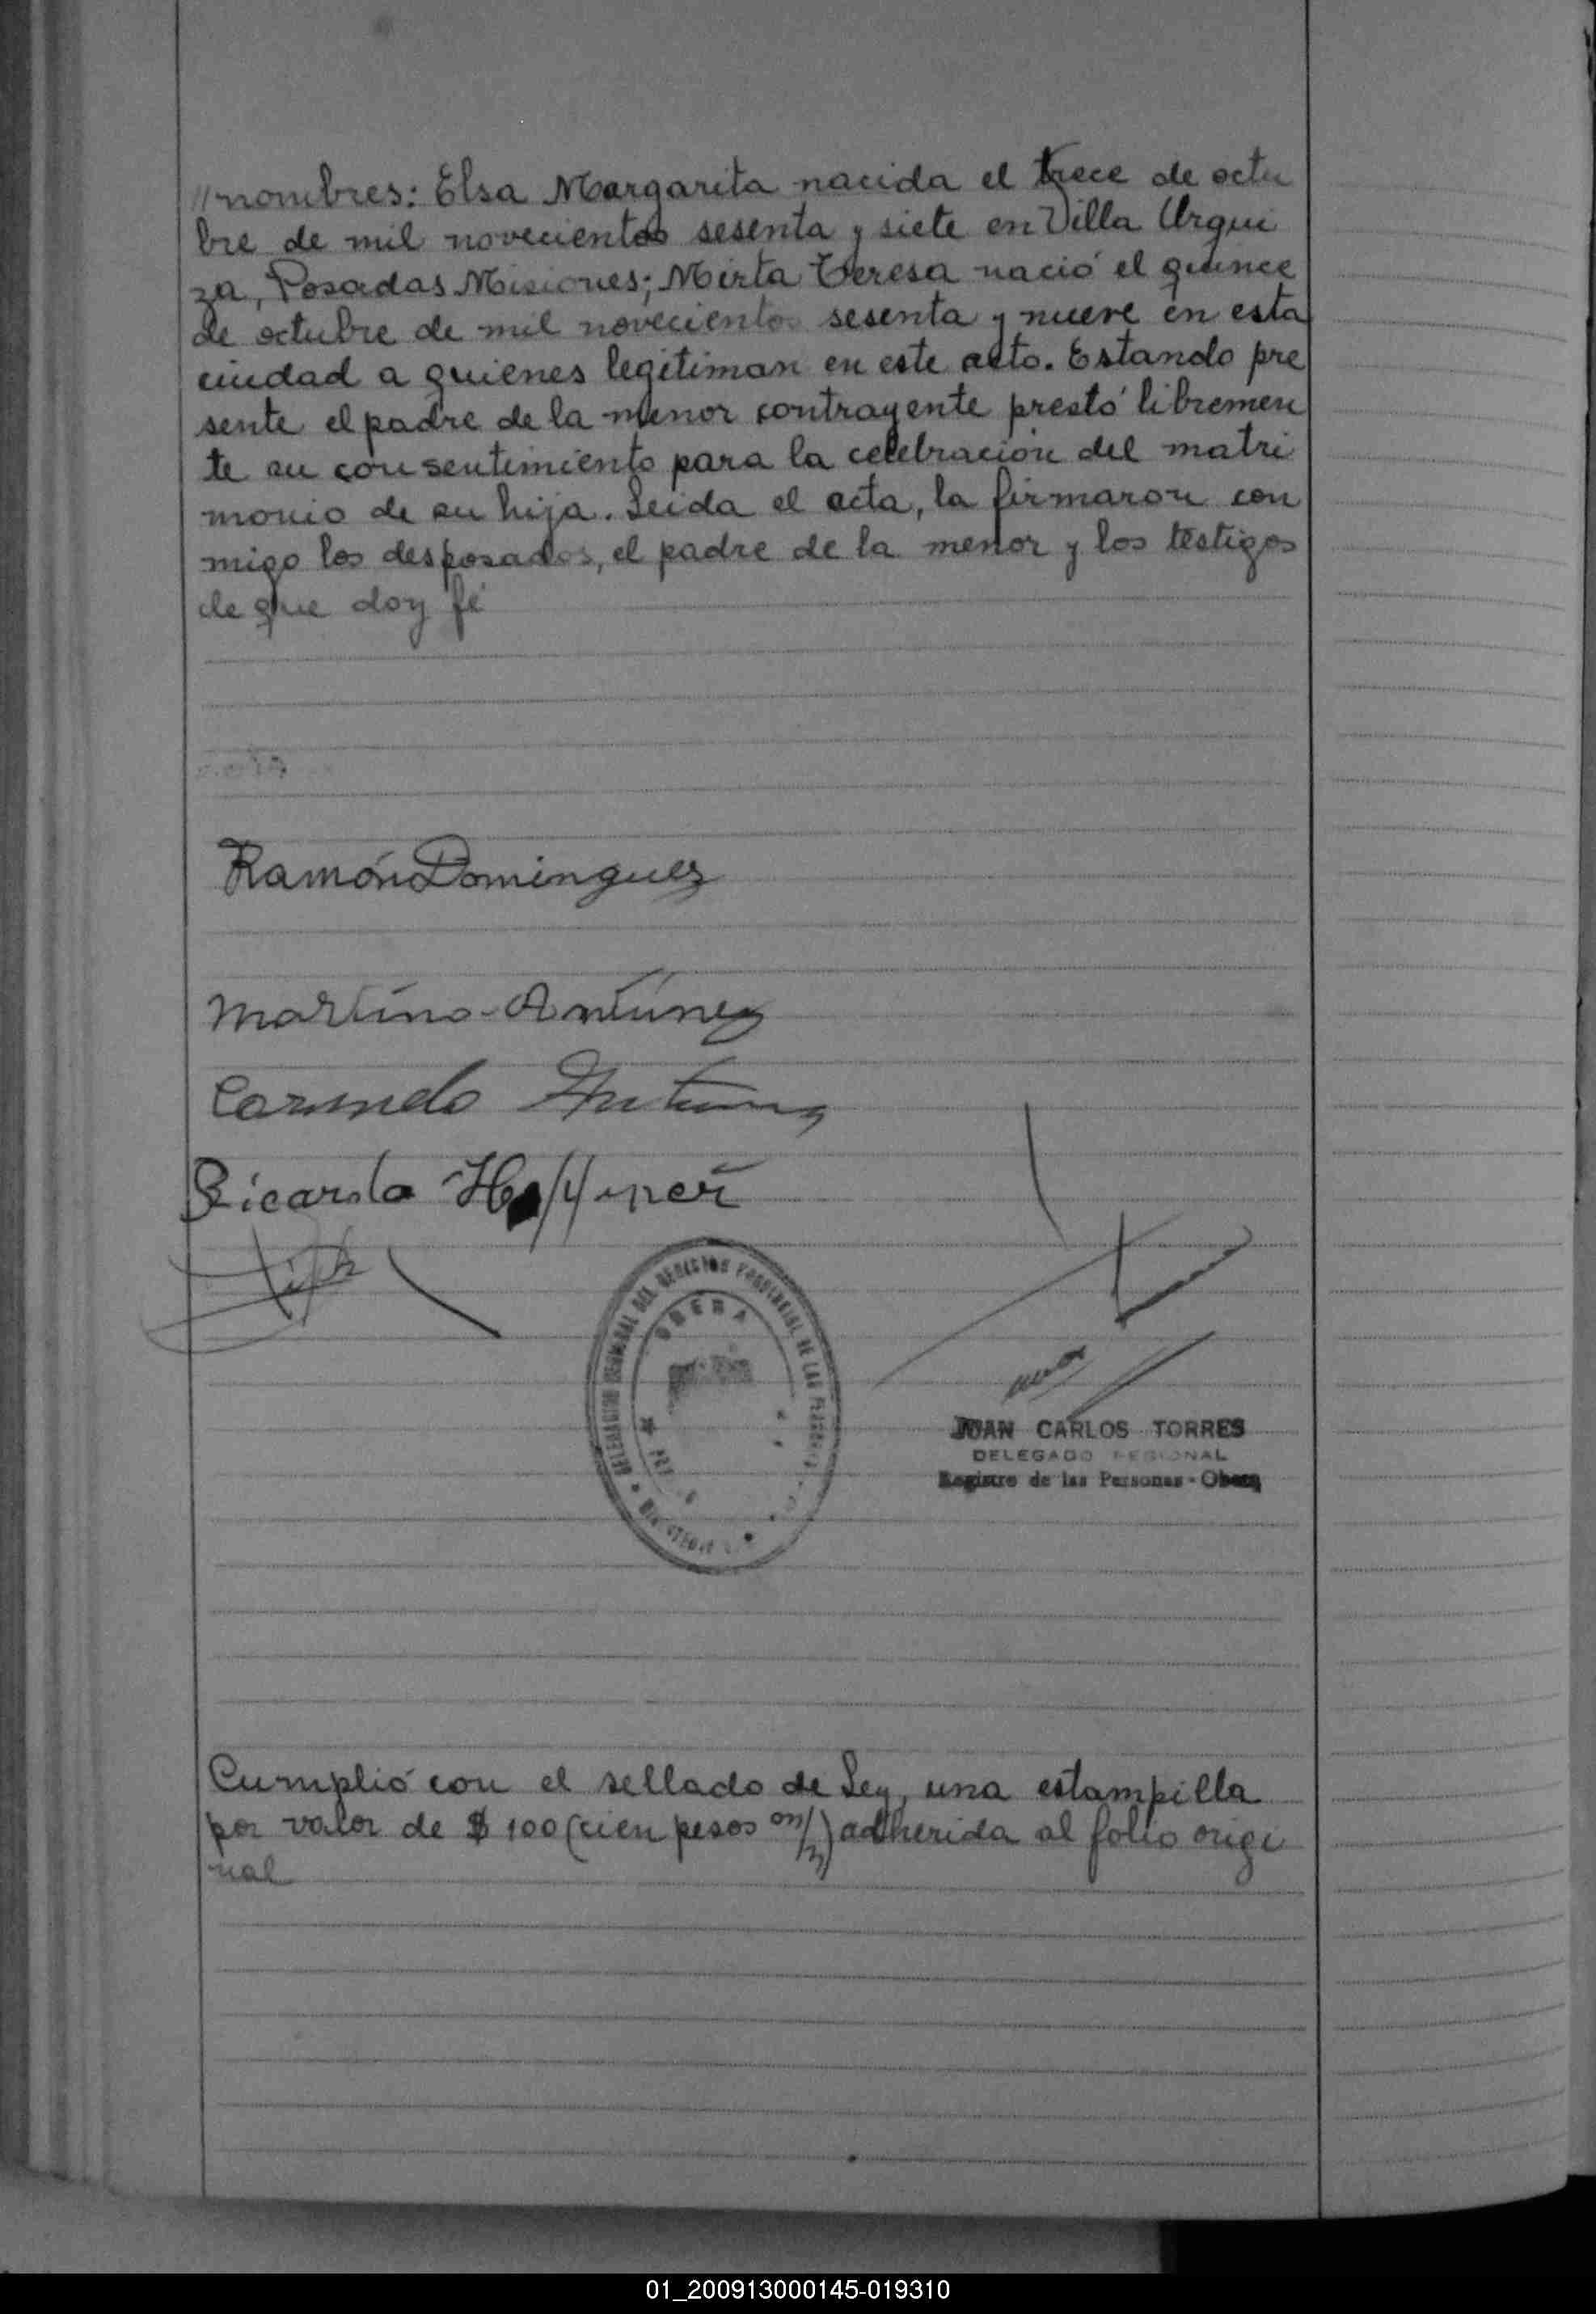 //nombres: Elsa Margarita nacida el trece de octu
bre de mil novecientos sesenta y siete en Villa Urqui
za, Posadas Misiones; Mirta Teresa nació el quince
de octubre de mil novecientos sesenta y nueve en esta
ciudad a quienes legitiman en este acto. Estando pre
sente el padre de la menor contrayente prestó libremen
te su consentimiento para la celebración del matri
monio de su hija. Leida el acta, la firmaron con
migo los desposados, el padre de la menor y los testigos
de que doy fé
Ramón Dominguez
Martino Antúnez
Antunez
Ricardo
DELEGACION SECCIONAL DEL REGISTRO PROVINCIAL DE LAS PERSONAS
OBERA
JUAN CARLOS TORRES
DELEGADO REGIONAL
Registro de las Personas - Obera
Cumplió con el sellado de Ley, una estampilla
por valor de $ 100 (cien pesos m/n) adherida al folio origi
nal
01_200913000145-019310